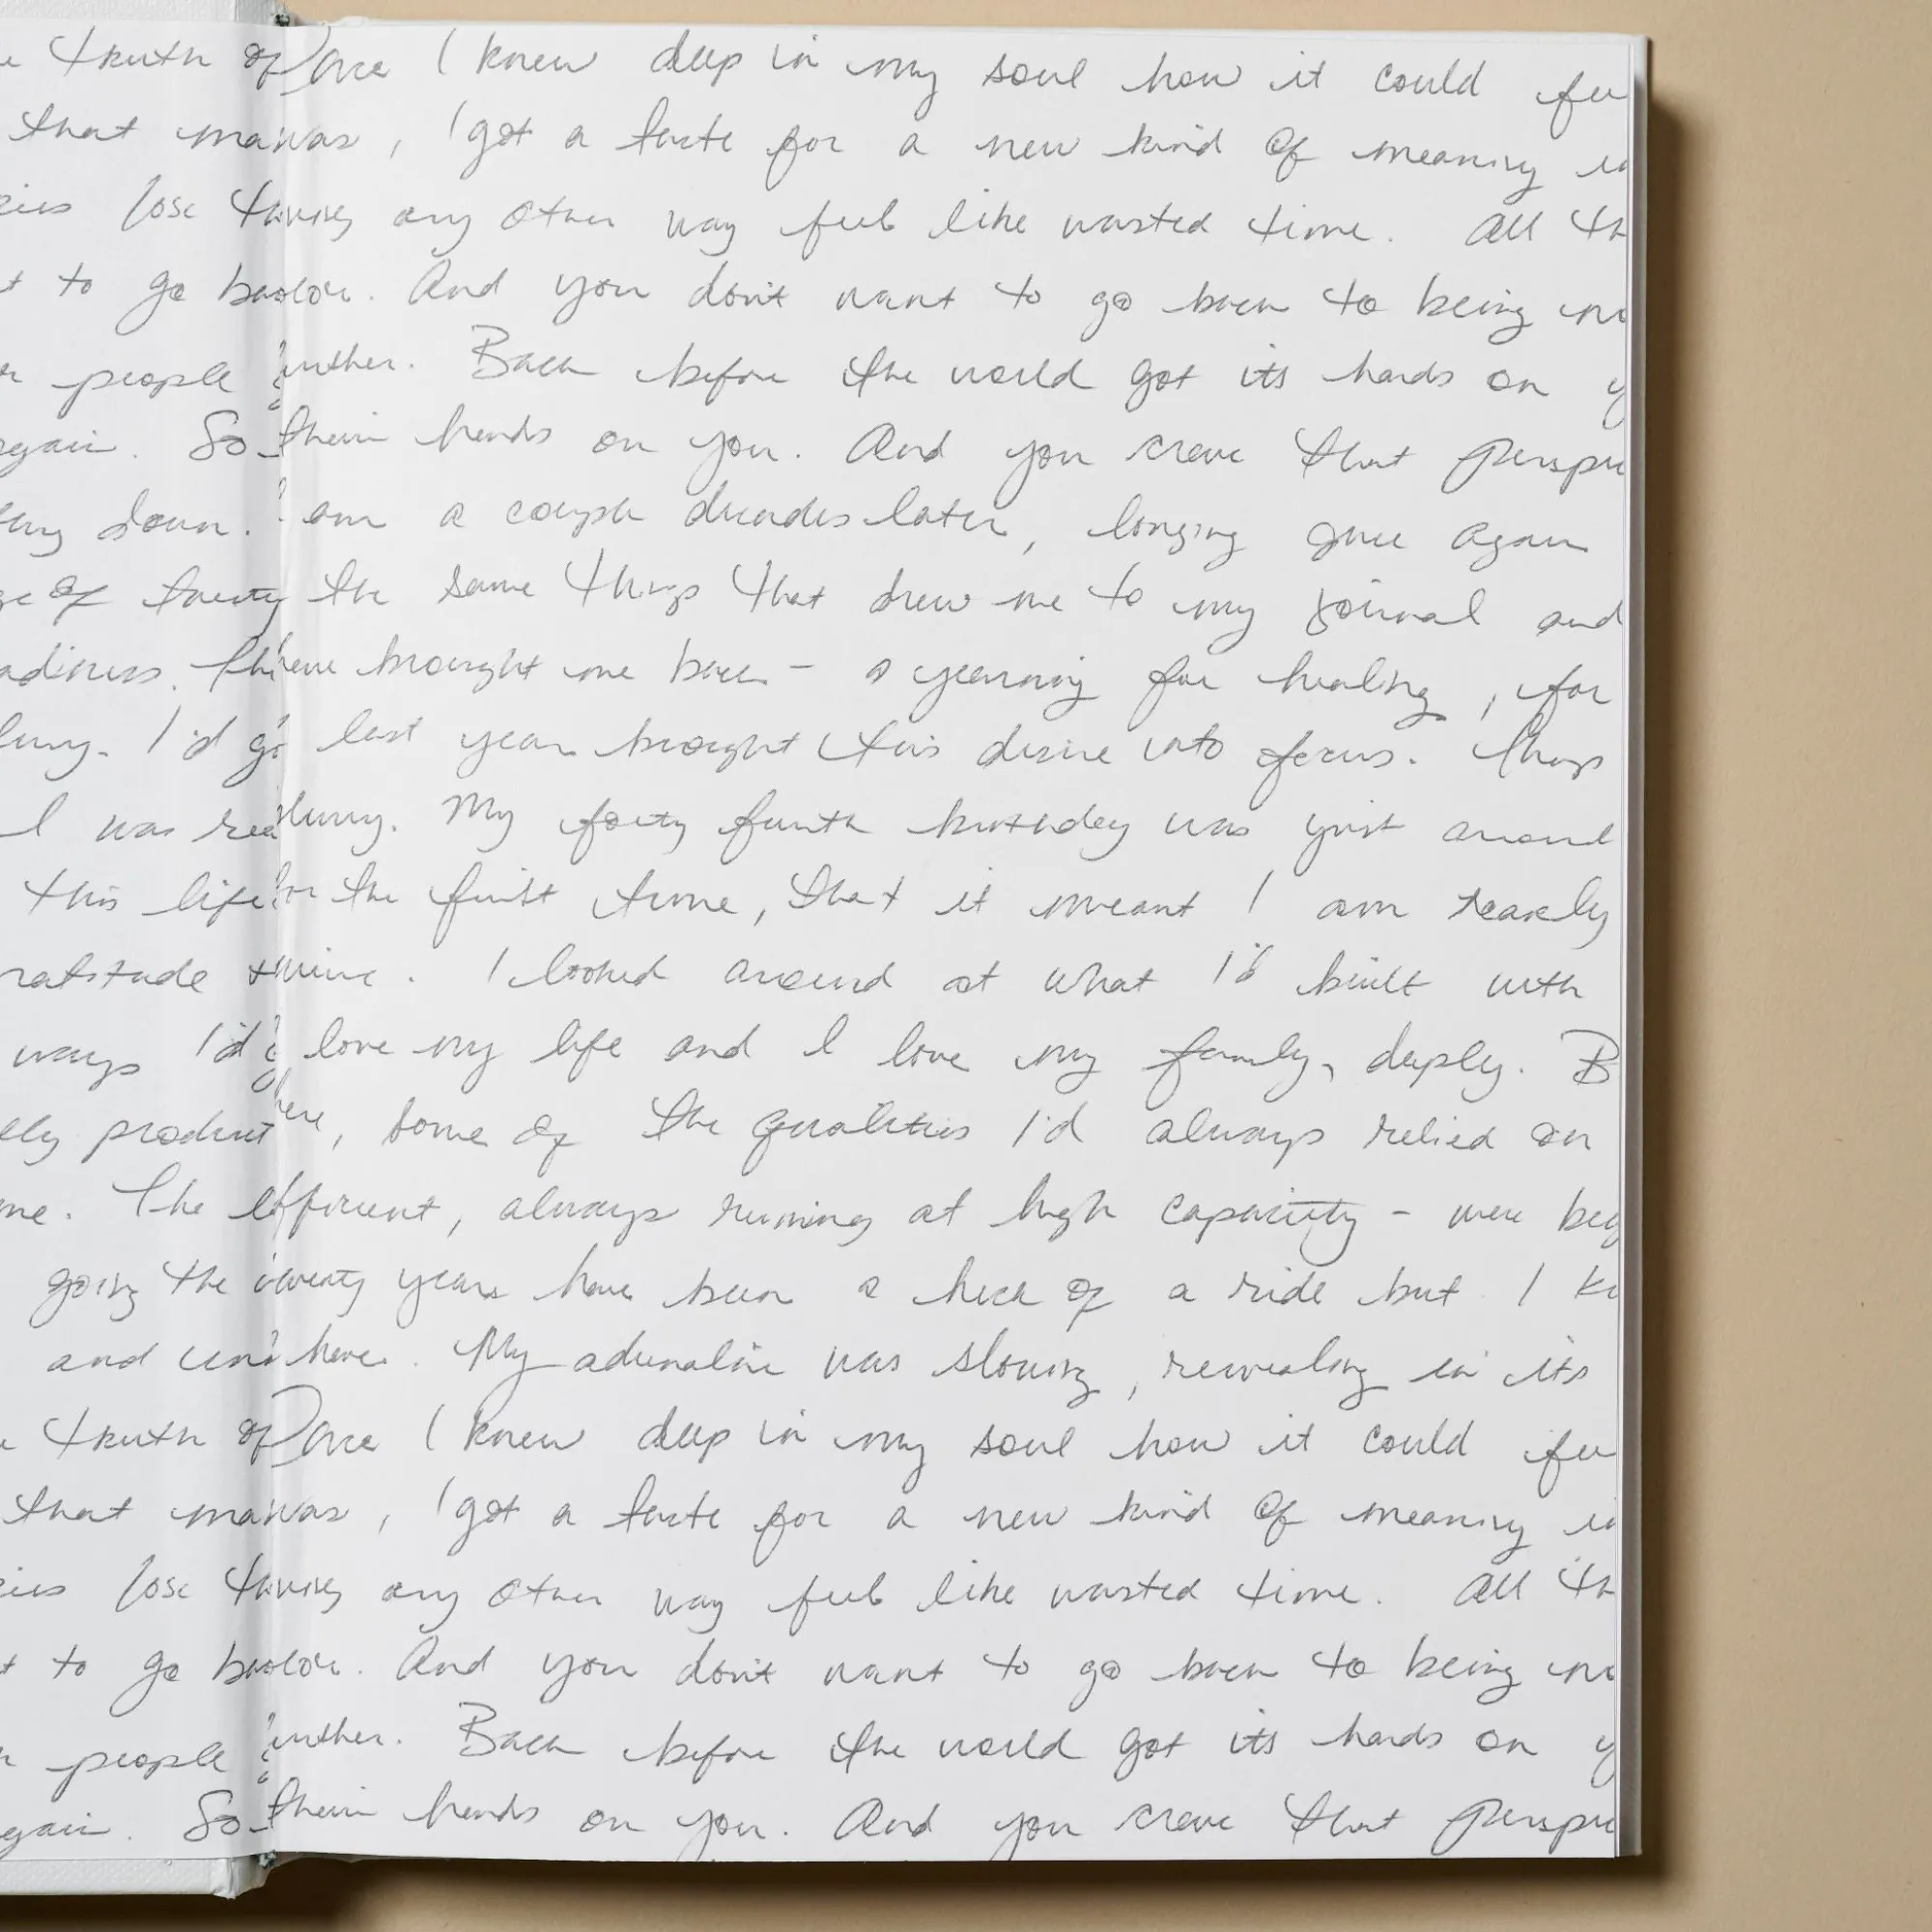 truth of Once I knew deep in my soul how it could
that was, I got a taste for a new kind of meaning
lose any other way feel like wasted time. All
to go color. And you don't want to go back to being
people further. Back before the world got its hands on
again. So their hands on you. And you crave that
down. am a couple decades later, longing once again
of twenty the same things that drew me to my journal and
have brought me back - a yearning for healing, for
I'd last year brought this desire into focus. Things
I was blurry. My forty fourth birthday was just around
this life for the first time, that it meant I am nearly
mine. I looked around at what I'd built with
ways I'd love my life and I love my family, deeply.
product here, some of the qualities I'd always relied on
me. The efficient, always running at high capacity - were
going the twenty years have been a heck of a ride but I
and here. My adrenaline was slowing, revealing in its
truth of Once I knew deep in my soul how it could
that was, I got a taste for a new kind of meaning
lose any other way feel like wasted time. All
to go color. And you don't want to go back to being
people further. Back before the world got its hands on
So their hands on you. And you crave that